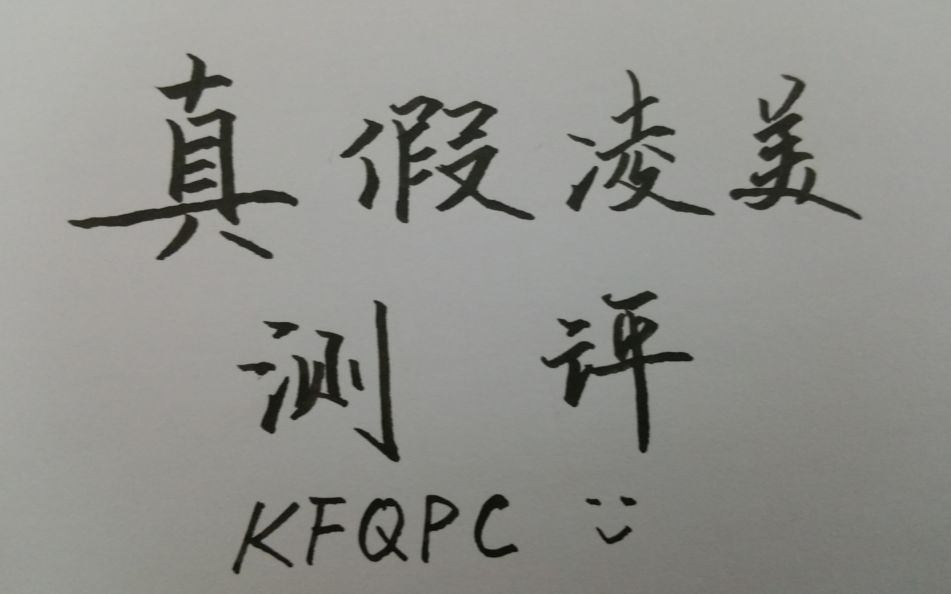 真假凌美
测评
KFQPC